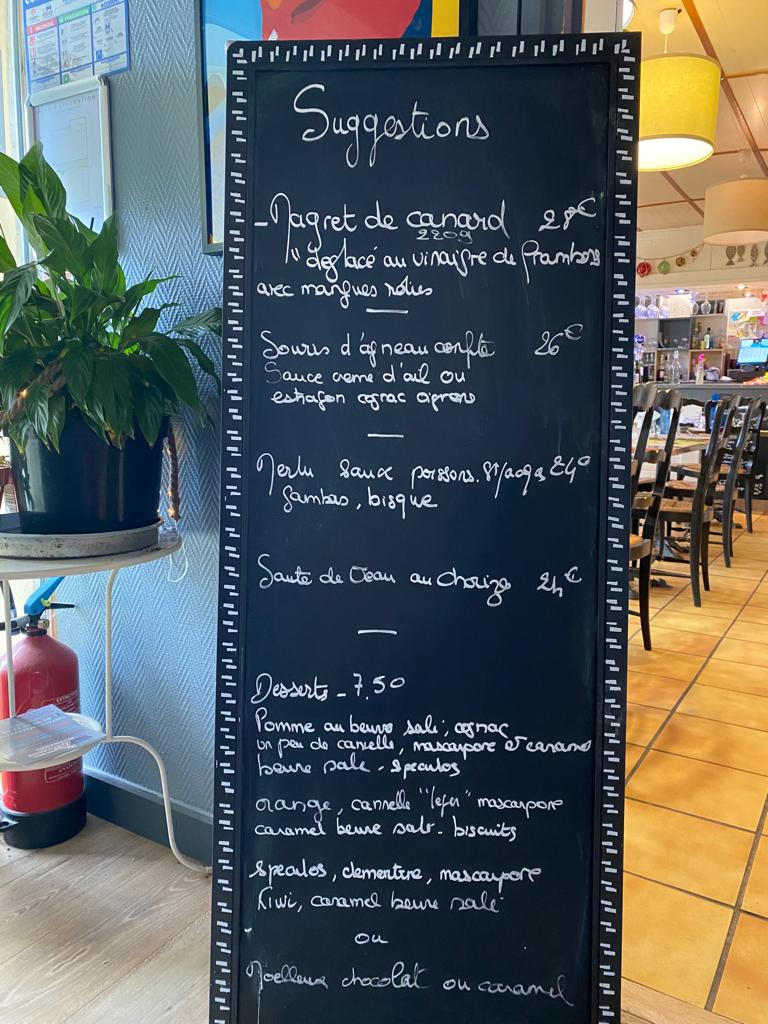 Suggestions
- Magret de canard 28€
220g
déglacé au vinaigre de framboise
avec mangues roties
Souris d'agneau confite 26€
Sauce creme d'ail ou
estragon cognac
Merlu poissons. St/Jacques 24€
Gambas, bisque
Sauté de Veau au chorizo 24€
Desserts - 7,50
Pomme au beurre salé, cognac
un peu de canelle, mascarpone et caramel
beurre salé - speculos
orange, cannelle mascarpone
caramel beurre salé - biscuits
speculos, clementine, mascarpone
Kiwi, caramel beurre salé
ou
Moelleux chocolat ou caramel